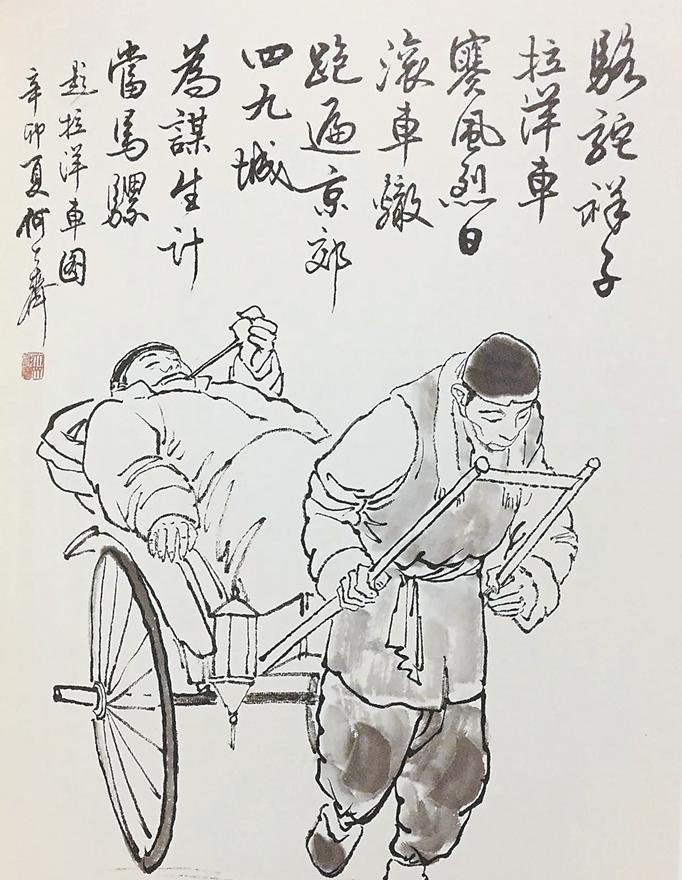 駱駝祥子
拉洋車
寒風烈日
滾車轍
跑遍京郊
四九城
為謀生計
當馬騾
題拉洋車图
辛卯夏何大齊